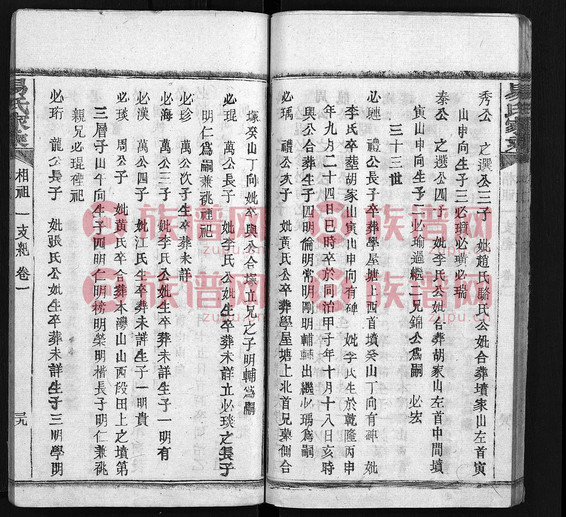 秀公 之選公三子 妣趙氏駱氏公妣合葬墳家山左首寅
山申向生子三必瑀必璉必瑞
泰公 之選公四子 妣李氏公妣合葬胡家山左首中間墳
寅山申向生子二必瑜 繼兄錦公爲嗣 必宏
三十三世
必璉 禮公長子卒葬學屋塘上西首墳癸山丁向有碑 妣
李氏卒葬胡家山寅山申向有碑 妣李氏生於乾隆丙申
年九月二十四日巳時卒於同治甲子年十月十八日亥時
與公合葬生子四明倫明常明剛明輔輔出繼必瑀爲嗣
必瑀 禮公次子 妣黃氏公妣卒葬學屋塘上北首兄塋側合
塚癸山丁向妣卒與公合塚立兄之子明輔爲嗣
必琨 萬公長子 妣李氏公妣生卒葬未詳立必琰之長子
明仁爲嗣兼祧禋祀
必珍 萬公次子生卒葬未詳
必海 萬公三子 妣李氏公妣生卒葬未詳生子一明有
必漢 萬公四子 妣江氏生卒葬未詳生子一明貴
必琰 周公子 妣黃氏卒合葬本灣山山西段田上之墳第
三層子山午向生子四明仁明榜明榮明楷長子明仁兼祧
親兄必琨禋祀
必珩 龍公長子 妣張氏公妣生卒葬未詳生子三明學明
易氏家乘
相祖一支糸 卷一
三九
族谱网
zupu.cn